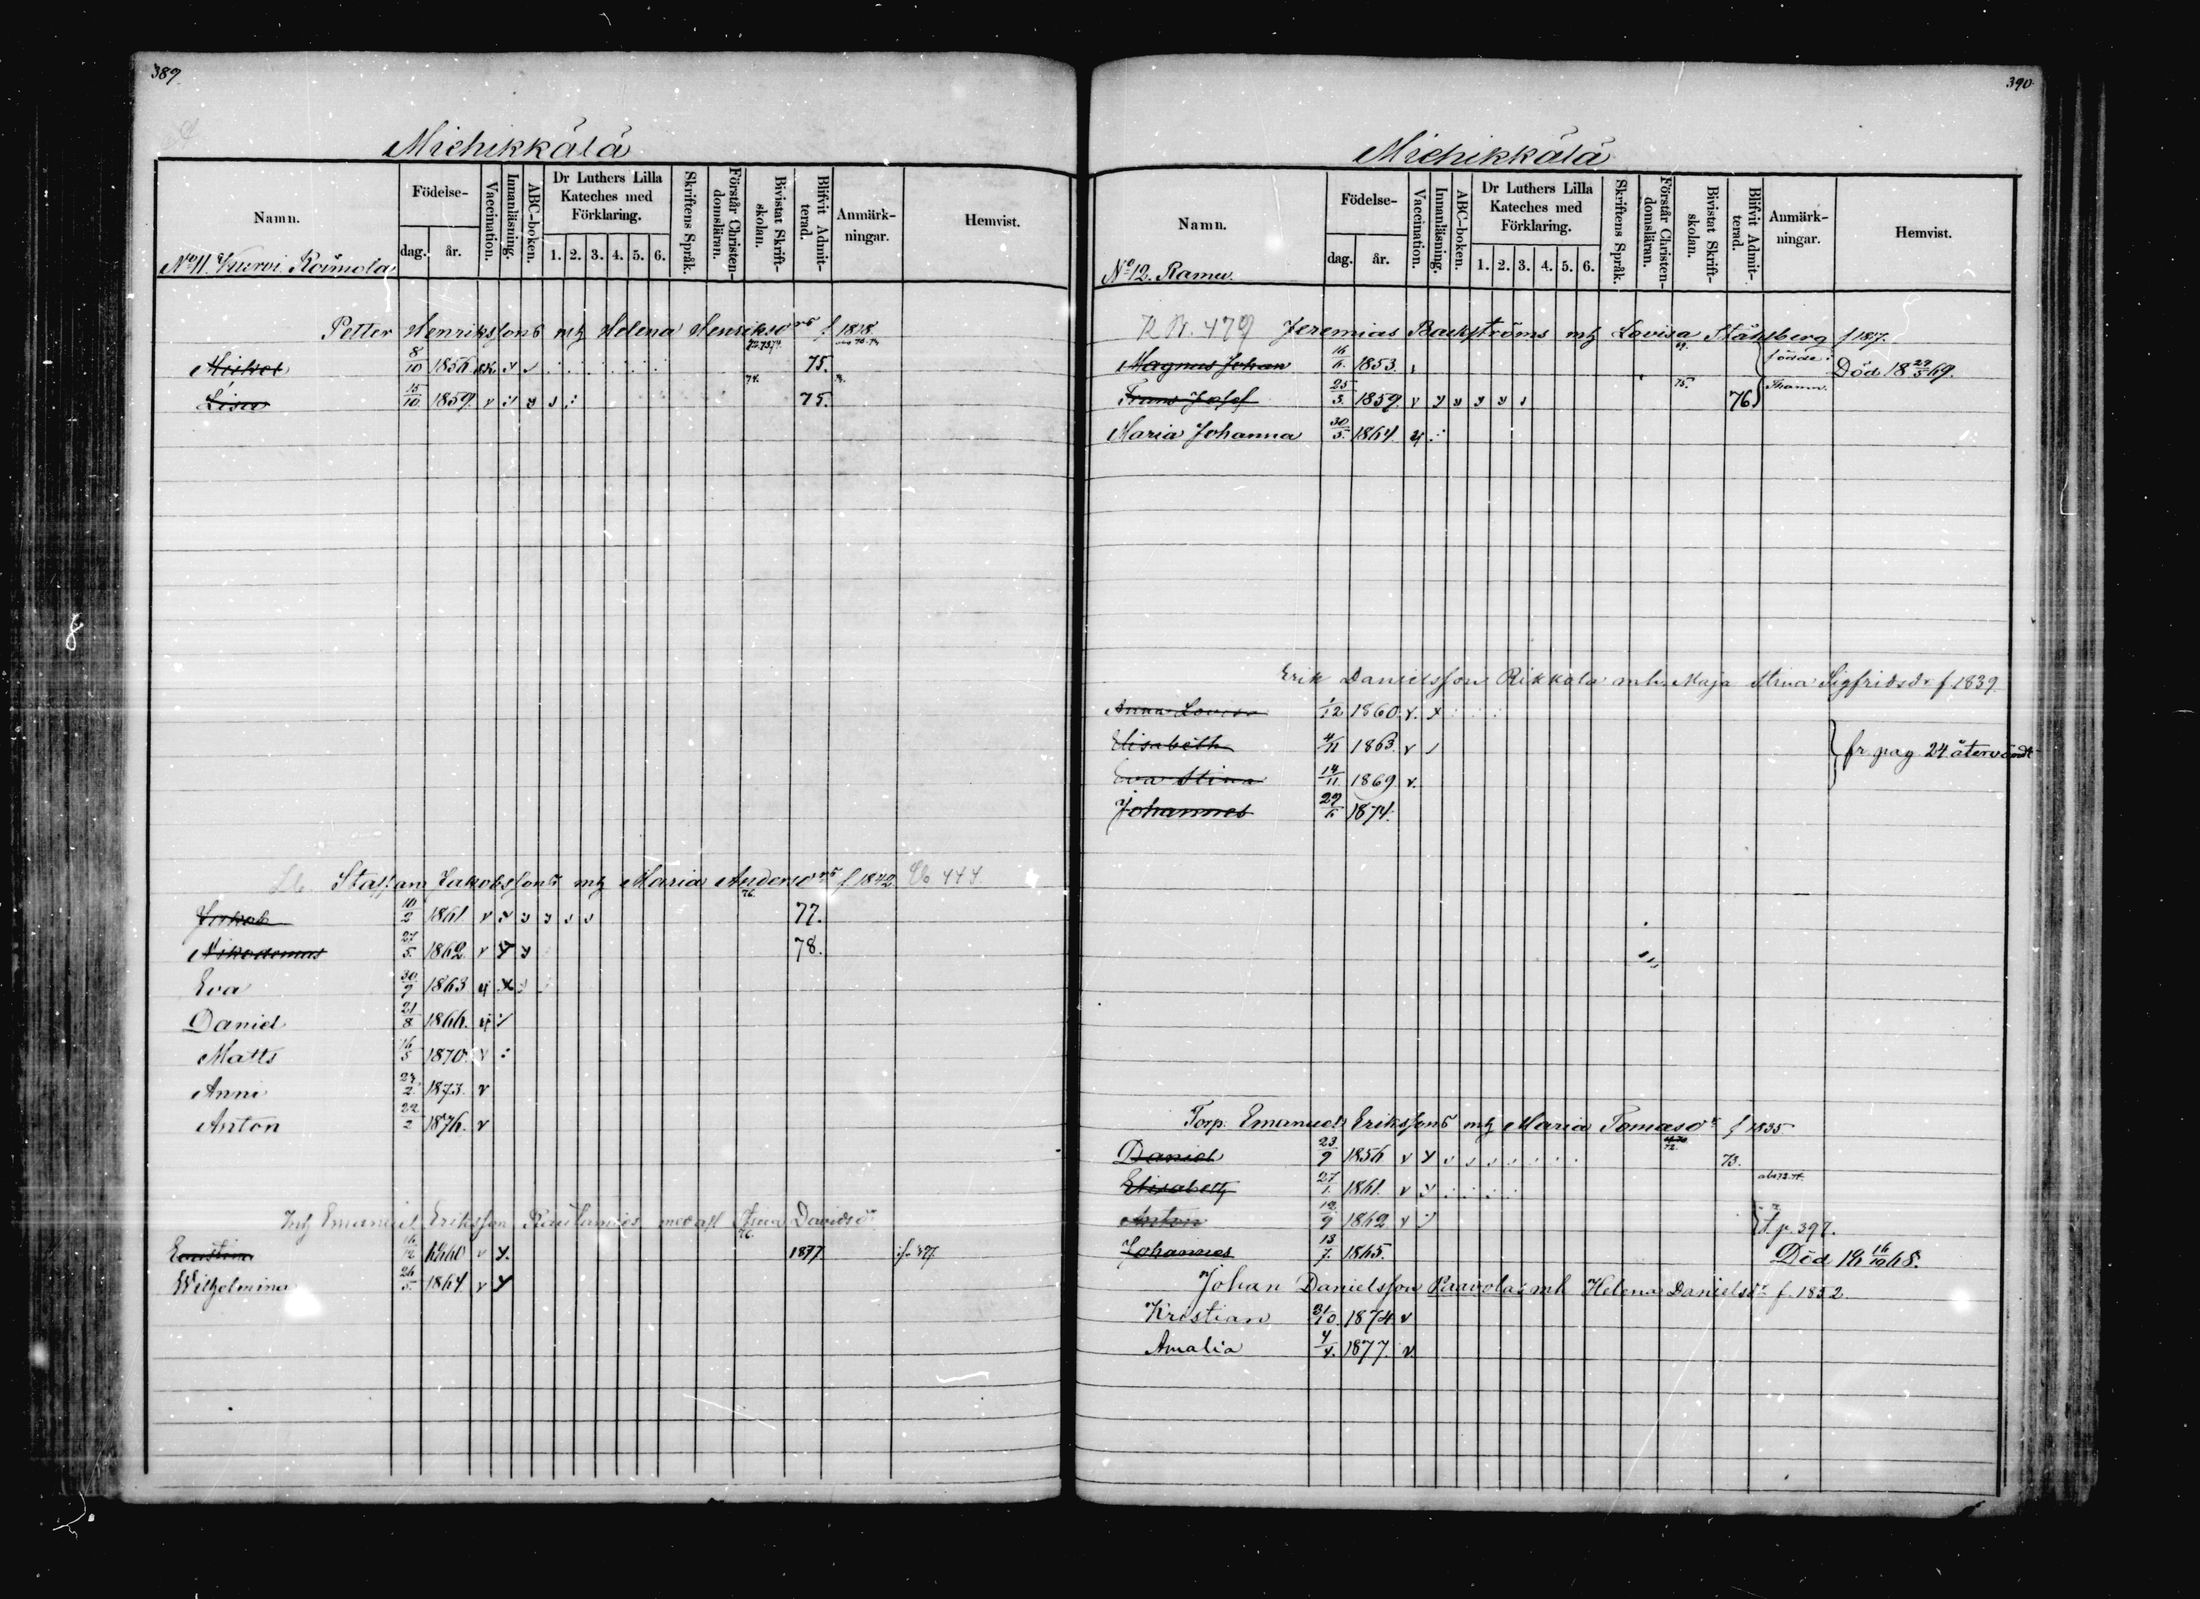 389.
Michikkälä
Namn. Födelse- dag. år. Vaccination. Innanläsning. ABC-boken. Dr Luthers Lilla Kateches med Förklaring. 1. 2. 3. 4. 5. 6. Skriftens Språk. Förstår Christendomsläran. Bivistat Skriftskolan. Blifvit Admitterad. Anmärkningar. Hemvist.
No 11. Kurvi Koimola
Petter Henrikssons mh Helena Henriksdr f 1818
8/10 1856 75.
Lisa 15/10 1859. v 74. 75.
Staffan Jakobssons mh Maria Andersdr f 1842 444
Jakob 10/2 1861. v 76. 77.
Nikodemus 27/5. 1862. v 78.
Eva 30/9 1863
Daniel 21/8 1866.
Matts 16/5 1870. v
Anna 1873. v
Anton 22/2 1876. v
Inh Emanuel Eriksson Davidsdr
1860 v 76. 1877
Wilhelmina 26/5. 1864 v
390.
Michikkälä
Namn. Födelse- dag. år. Vaccination. Innanläsning. ABC-boken. Dr Luthers Lilla Kateches med Förklaring. 1. 2. 3. 4. 5. 6. Skriftens Språk. Förstår Christendomsläran. Bivistat Skriftskolan. Blifvit Admitterad. Anmärkningar. Hemvist.
No 12. Ramu.
479 Jeremias Backströms mh Lovisa Ståhlberg
Magnus Johan 16/6. 1853. 69. födde i Död 18 29/5 69.
Frans Josef 25/3. 1859 v 75. 76
Maria Johanna 30/5. 1864
Erik Danielsson Rikkola mh. Maja Stina Sigfridsdr f 1839.
Anna Lovisa 1/12 1860. v.
Elisabeth 4/11 1863. v
Eva Stina 14/11 1869 v. fr pag. 24 återvändt
Johannes 29/6 1874.
Torp. Emanuel Erikssons mh Maria Tomasdr f 1835
Daniel 23/9 1856 v 72. 73.
Elisabeth 27/1. 1861. v
Anton 12/9 1862 v t. p. 397.
Johannes 13/7. 1865. Död 18 16/10 68.
Johan Danielsson Paavola mh Helena Danielsdr f. 1832
Kristian 31/10 1874 v
Amalia 4/4. 1877. v.